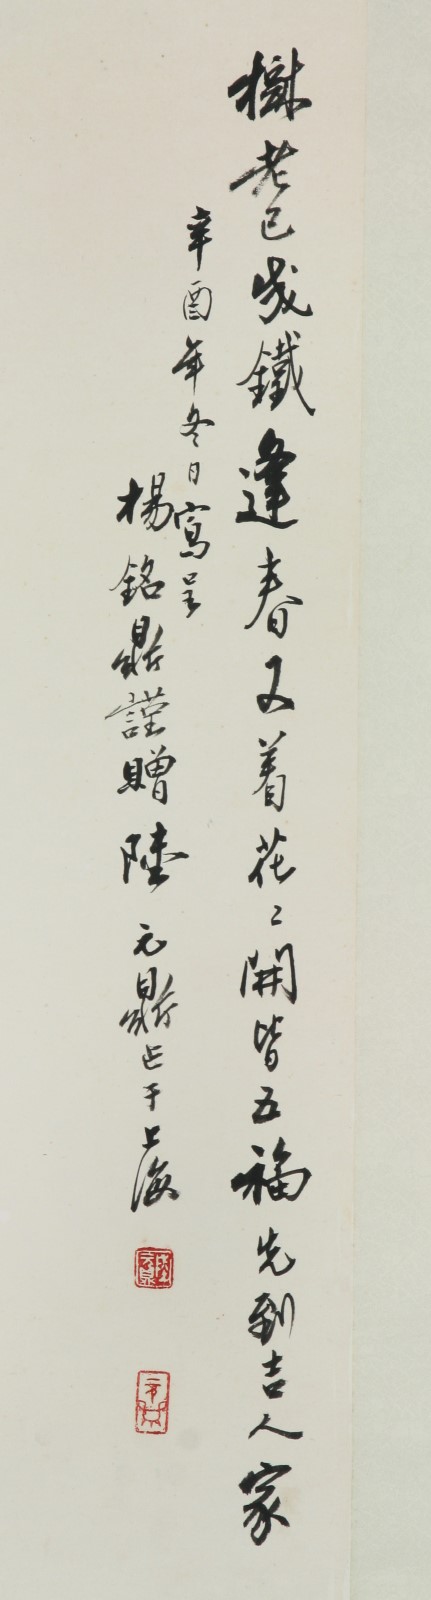 樹老已成鐵逢春又着花〻開皆五福先到吉人家
辛酉年冬日寫呈
楊銘鼎謹贈陸元鼎占于上海
陸元鼎